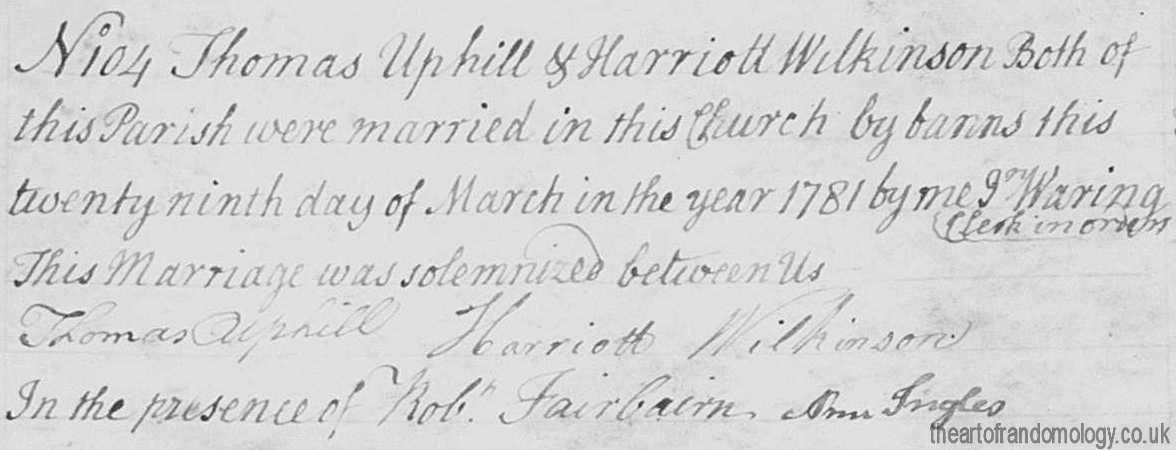 No 104 Thomas Uphill & Harriott Wilkinson Both of
this Parish were married in this Church by banns this
twenty ninth day of March in the year 1781 by me Jon Waring
Clerk in orders
This Marriage was solemnized between Us
Thomas Uphill Harriott Wilkinson
In the presence of Robt Fairbairn Ann Ingles
theartofrandomology.co.uk